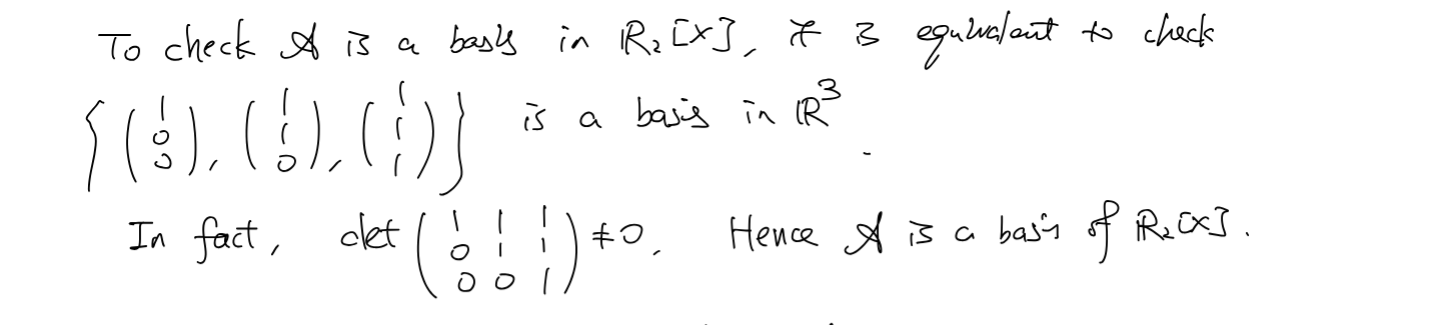 To check 𝒜 is a basis in ℝ₂[X], it is equivalent to check
{ (1 0 0), (1 1 0), (1 1 1) } is a basis in ℝ³.
In fact, det (1 1 1 / 0 1 1 / 0 0 1) ≠ 0. Hence 𝒜 is a basis of ℝ₂[X].